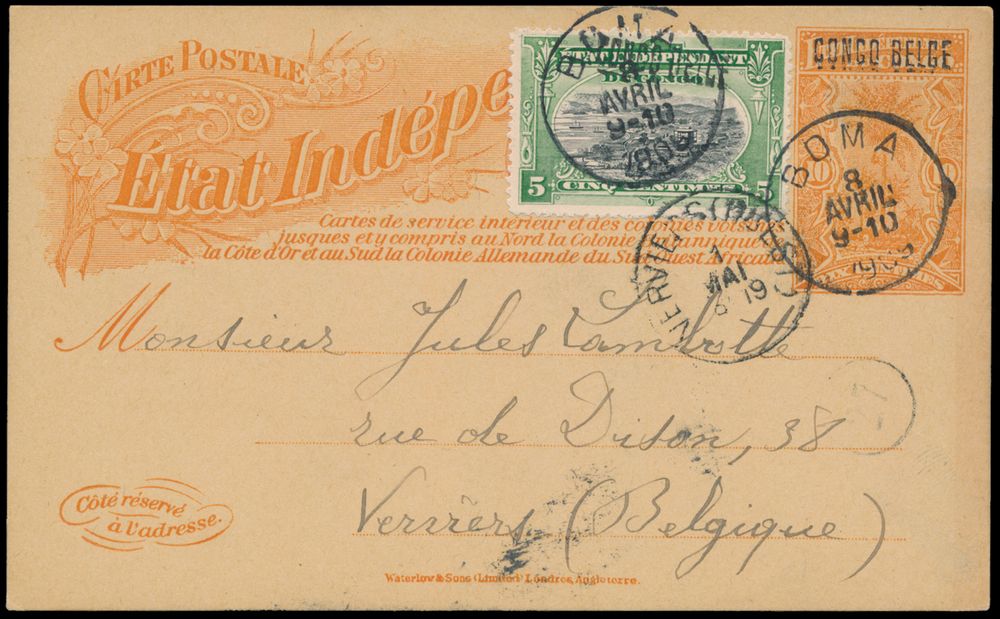 CARTE POSTALE
État Indépe
CONGO BELGE
ÉTAT INDÉPENDANT
DU CONGO
5 CINQ CENTIMES 5
BOMA
AVRIL
9-10
BOMA
8
AVRIL
9-10
1909
Cartes de service intérieur et des colonies voisines
jusques et y compris au Nord la Colonie Britannique
la Côte d'Or et au Sud la Colonie Allemande du Sud Ouest Africain
VERVIERS
1
MAI
8 19
Monsieur Jules Lambotte
rue de Dison, 38
Verviers (Belgique)
27
Côté réservé
à l'adresse.
Waterlow & Sons (Limited) Londres, Angleterre.